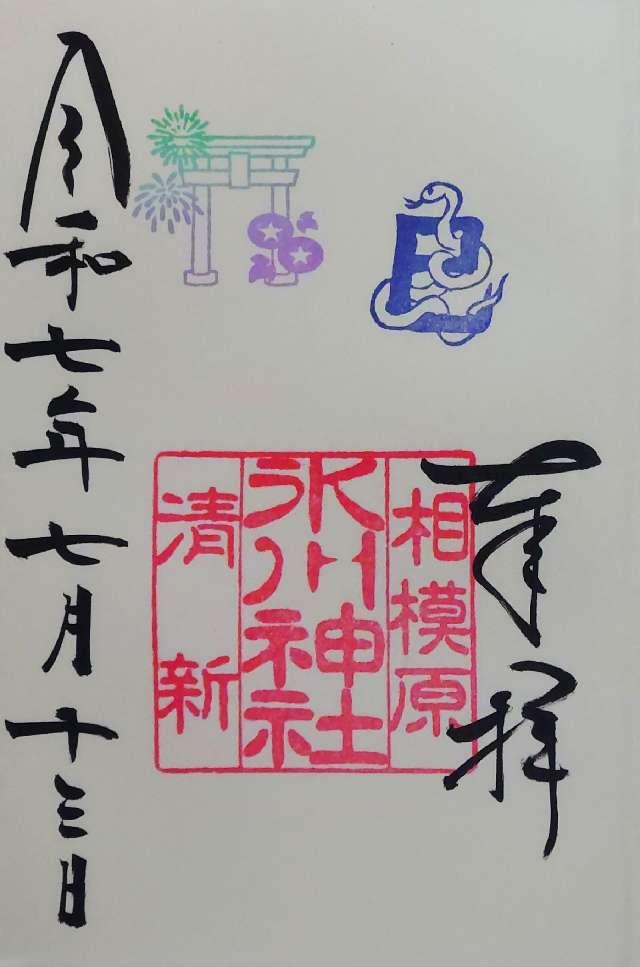 奉拝
相模原
氷川神社
清新
令和七年七月十三日